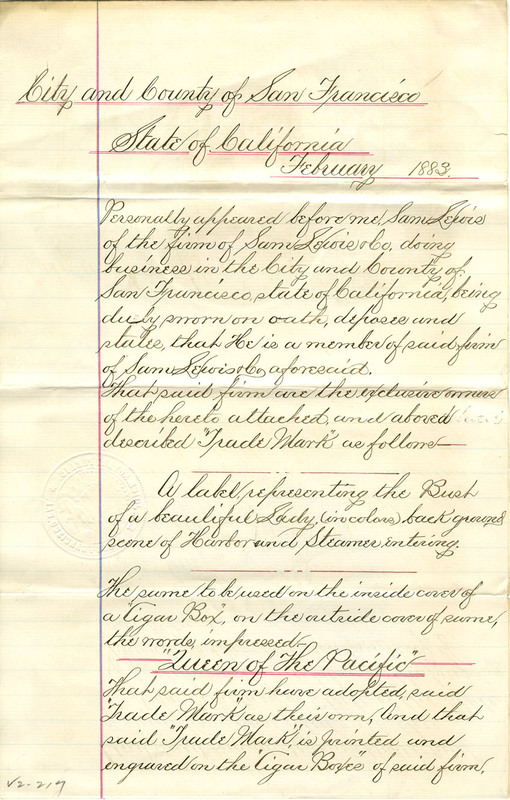 City and County of San Francisco
State of California
February 1883.
Personally appeared before me, Sam Lewis
of the firm of Sam Lewis & Co, doing
business in the City and County of
San Francisco, state of California, being
duly sworn on oath, deposes and
states, that He is a member of said firm
of Sam Lewis & Co aforesaid.
That said firm are the exclusive owners
of the hereto attached, and above
described "Trade Mark" as follows—
A label representing the Bust
of a beautiful Lady, (in colors) back ground
scene of Harbor and Steamer, entering.
The same to be used on the inside cover of
a "Cigar Box", on the outside cover of same,
the words, impressed—
"Queen of The Pacific"
That said firm have adopted, said
"Trade Mark" as their own, And that
said "Trade Mark", is printed and
engraved on the "Cigar Boxes" of said firm.
V2-217